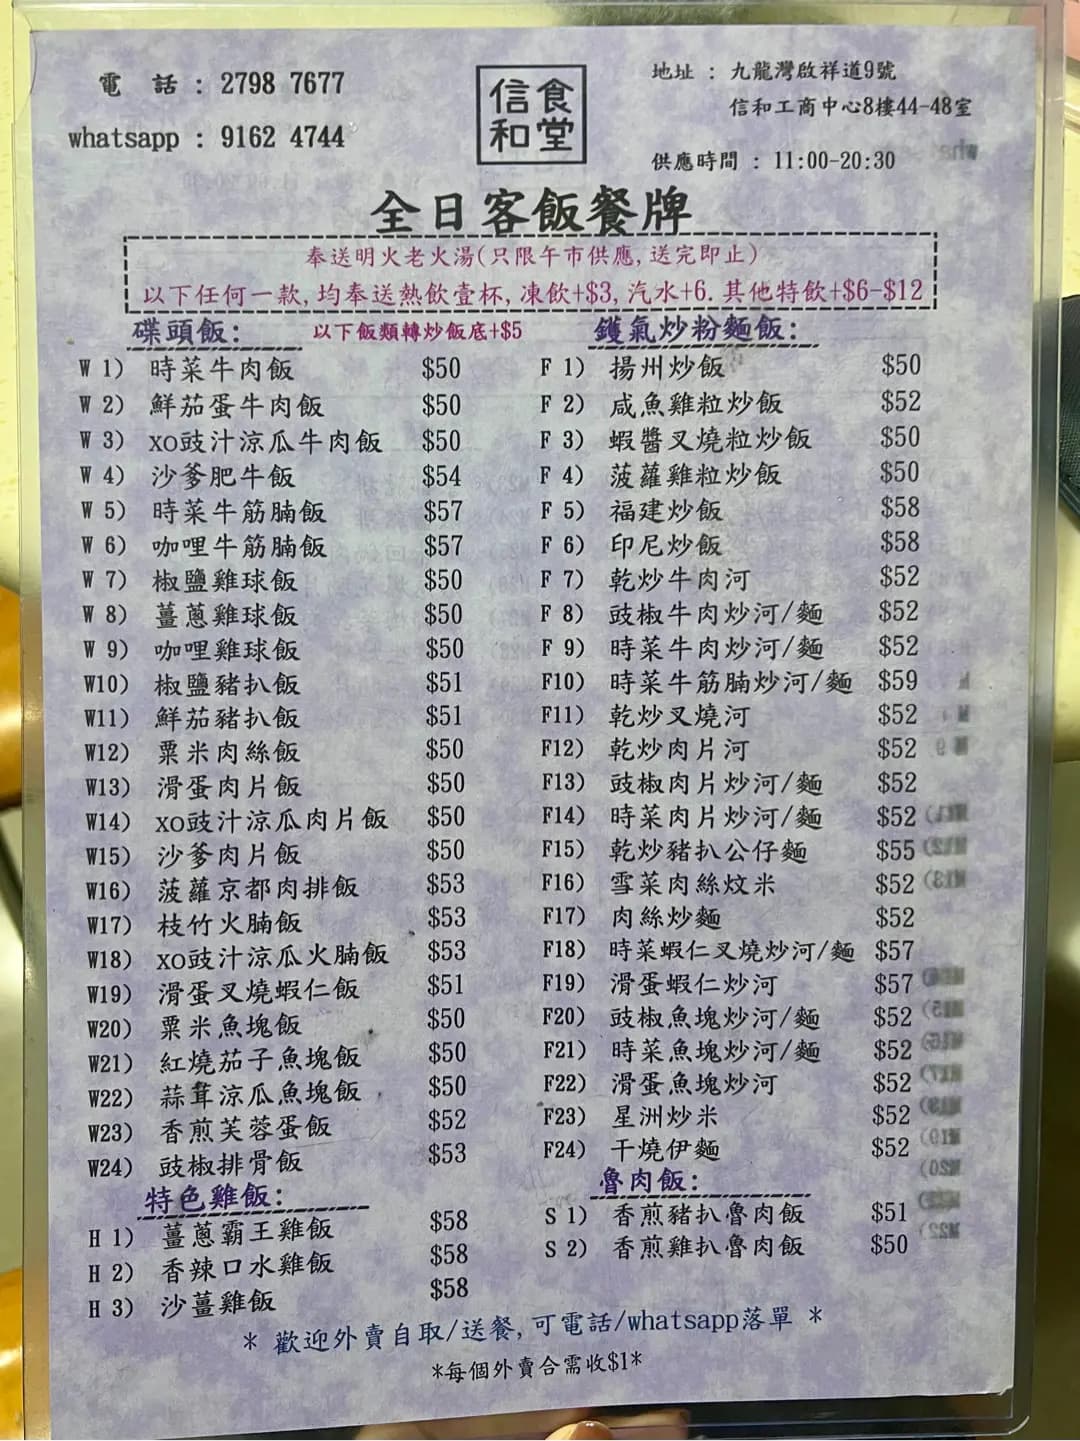 電 話 : 2798 7677
whatsapp : 9162 4744
信食
和堂
地址 : 九龍灣啟祥道9號
信和工商中心8樓44-48室
供應時間 : 11:00-20:30
全日客飯餐牌
奉送明火老火湯(只限午市供應,送完即止)
以下任何一款,均奉送熱飲壹杯,凍飲+$3,汽水+6.其他特飲+$6-$12
碟頭飯: 以下飯類轉炒飯底+$5
W 1) 時菜牛肉飯 $50
W 2) 鮮茄蛋牛肉飯 $50
W 3) XO豉汁涼瓜牛肉飯 $50
W 4) 沙爹肥牛飯 $54
W 5) 時菜牛筋腩飯 $57
W 6) 咖哩牛筋腩飯 $57
W 7) 椒鹽雞球飯 $50
W 8) 薑蔥雞球飯 $50
W 9) 咖哩雞球飯 $50
W10) 椒鹽豬扒飯 $51
W11) 鮮茄豬扒飯 $51
W12) 粟米肉絲飯 $50
W13) 滑蛋肉片飯 $50
W14) XO豉汁涼瓜肉片飯 $50
W15) 沙爹肉片飯 $50
W16) 菠蘿京都肉排飯 $53
W17) 枝竹火腩飯 $53
W18) XO豉汁涼瓜火腩飯 $53
W19) 滑蛋叉燒蝦仁飯 $51
W20) 粟米魚塊飯 $50
W21) 紅燒茄子魚塊飯 $50
W22) 蒜茸涼瓜魚塊飯 $50
W23) 香煎芙蓉蛋飯 $52
W24) 豉椒排骨飯 $53
特色雞飯:
H 1) 薑蔥霸王雞飯 $58
H 2) 香辣口水雞飯 $58
H 3) 沙薑雞飯 $58
鑊氣炒粉麵飯:
F 1) 揚州炒飯 $50
F 2) 咸魚雞粒炒飯 $52
F 3) 蝦醬叉燒粒炒飯 $50
F 4) 菠蘿雞粒炒飯 $50
F 5) 福建炒飯 $58
F 6) 印尼炒飯 $58
F 7) 乾炒牛肉河 $52
F 8) 豉椒牛肉炒河/麵 $52
F 9) 時菜牛肉炒河/麵 $52
F10) 時菜牛筋腩炒河/麵 $59
F11) 乾炒叉燒河 $52
F12) 乾炒肉片河 $52
F13) 豉椒肉片炒河/麵 $52
F14) 時菜肉片炒河/麵 $52
F15) 乾炒豬扒公仔麵 $55
F16) 雪菜肉絲炆米 $52
F17) 肉絲炒麵 $52
F18) 時菜蝦仁叉燒炒河/麵 $57
F19) 滑蛋蝦仁炒河 $57
F20) 豉椒魚塊炒河/麵 $52
F21) 時菜魚塊炒河/麵 $52
F22) 滑蛋魚塊炒河 $52
F23) 星洲炒米 $52
F24) 干燒伊麵 $52
魯肉飯:
S 1) 香煎豬扒魯肉飯 $51
S 2) 香煎雞扒魯肉飯 $50
* 歡迎外賣自取/送餐,可電話/whatsapp落單 *
*每個外賣合需收$1*